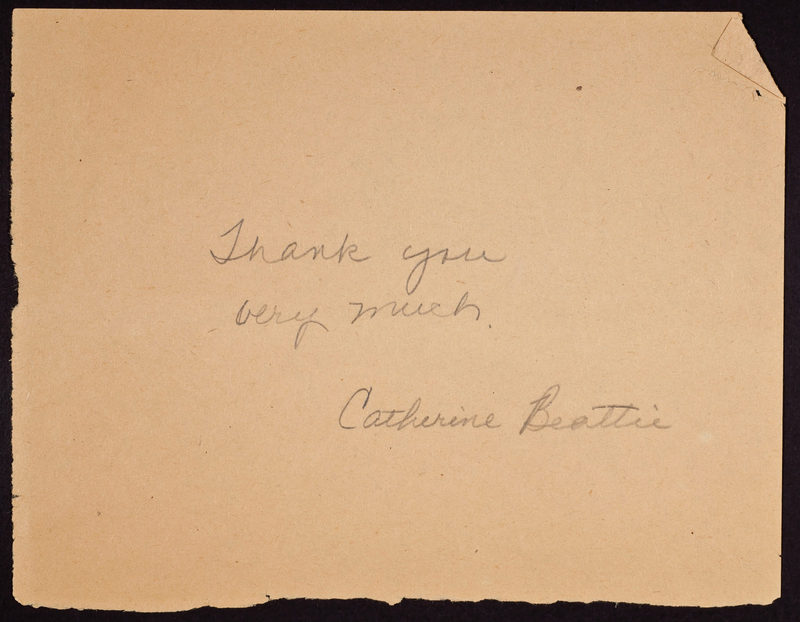 Thank you
very much.
Catherine Beattie